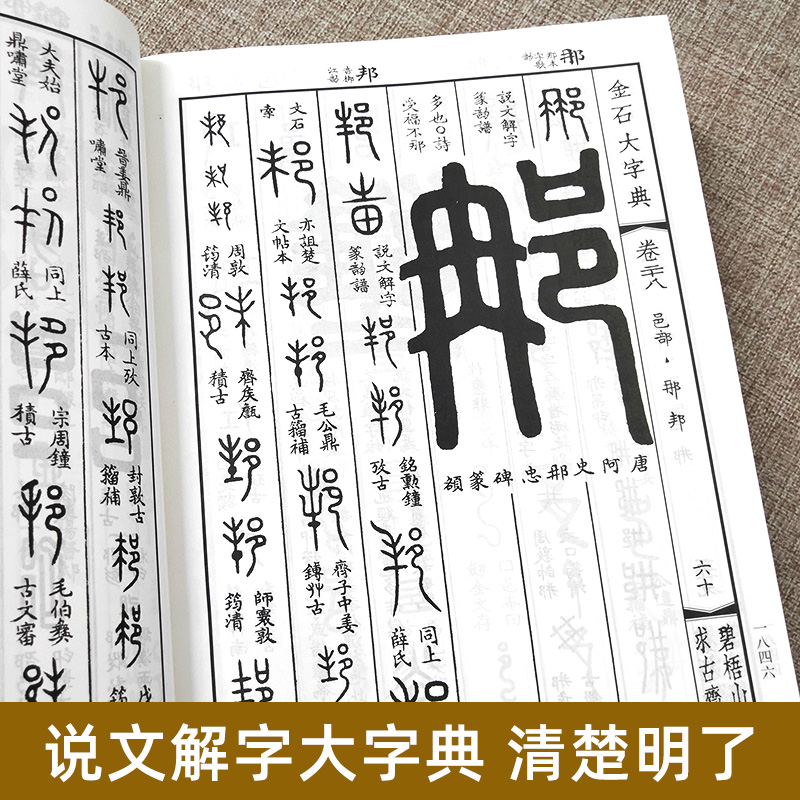 金石大字典
卷二十八
邑部
那邦
六十
一八四六
那
邦
說文解字
篆韵譜
多也〇詩
受福不那
唐阿史那忠碑篆額
說文解字
篆韵譜
銘勳鐘
攷古
同上
薛氏
文石
索
亦詛楚
文帖本
毛公鼎
古籀補
齊子中姜
鎛艸古
周敦
筠清
齊侯甗
積古
師䆐敦
筠清
晉姜鼎
嘯堂
同上攷
古本
封敦古
籀補
大夫始
鼎嘯堂
同上
薛氏
宗周鐘
積古
毛伯彝
古文審
说文解字大字典 清楚明了